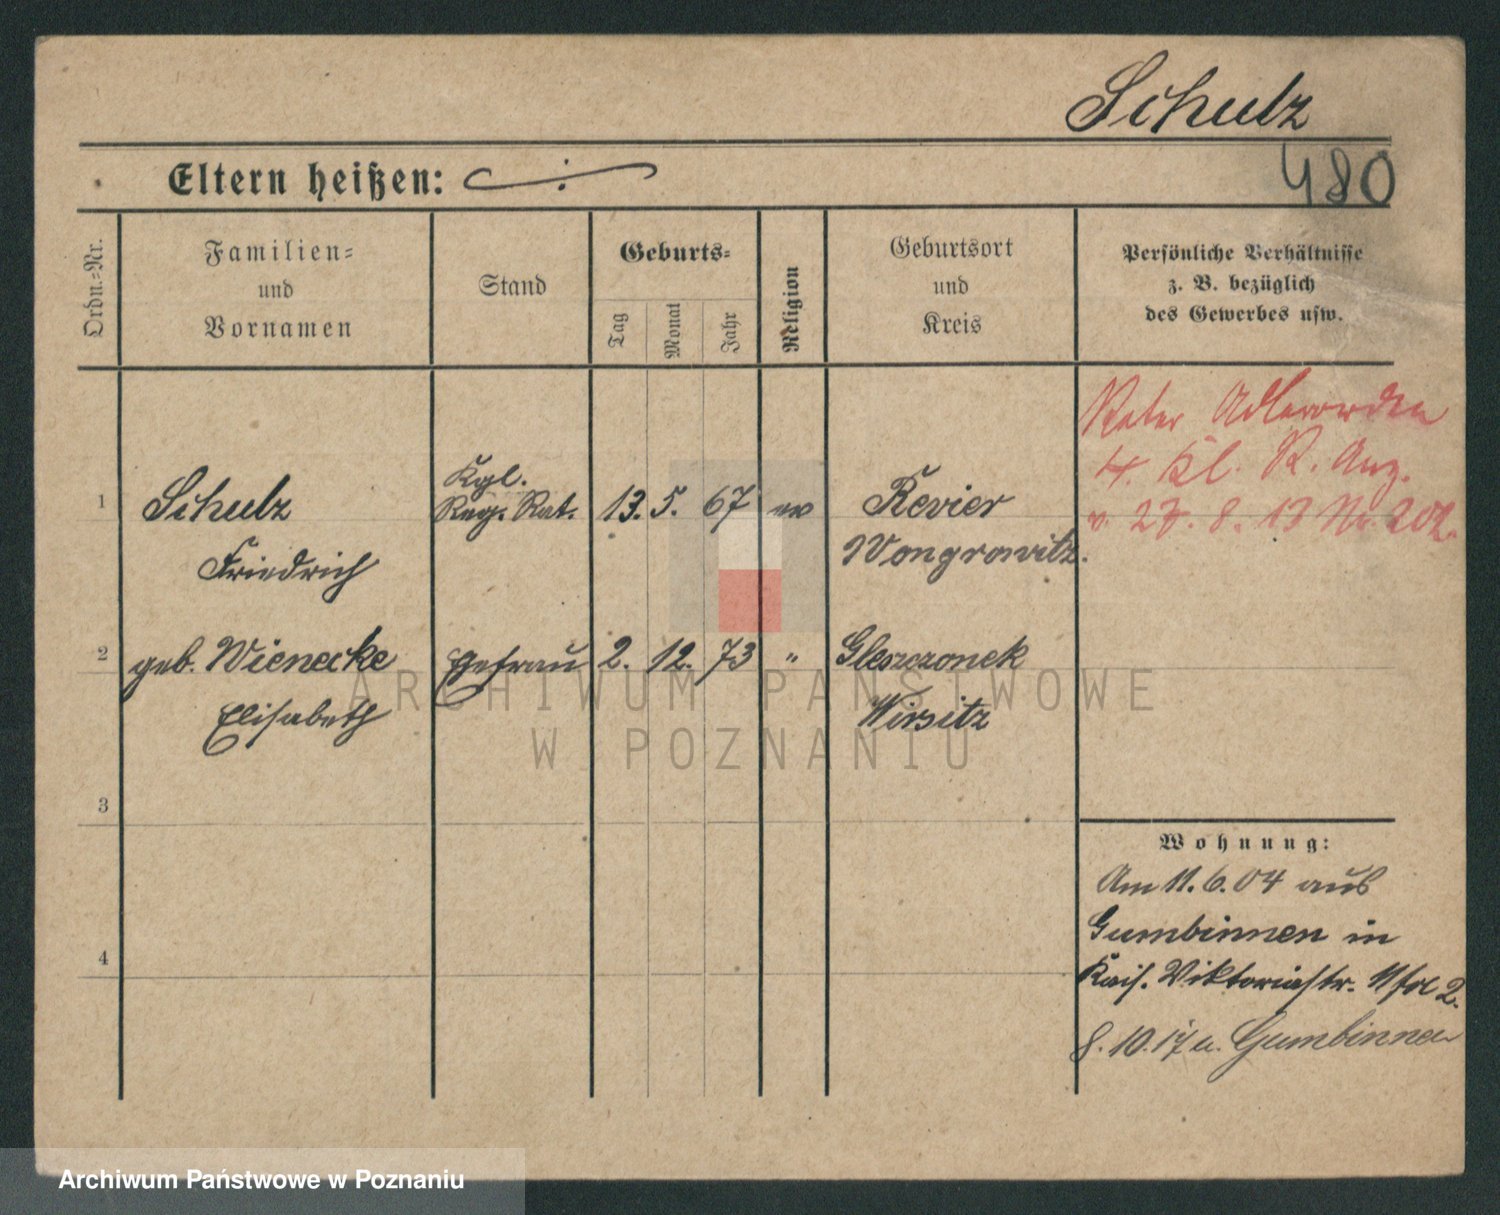 Schulz
480
Eltern heißen:
Ordn.-Nr.
Familien-
und
Vornamen
Stand
Geburts-
Tag
Monat
Jahr
Religion
Geburtsort
und
Kreis
Persönliche Verhältnisse
z. B. bezüglich
des Gewerbes usw.
Roter Adlerorden
4. Kl. R. Anz.
v. 27. 8. 13 Nr. 202.
1 Schulz Kgl. Reg. Rat. 13. 5. 67 ev Revier
Friedrich Wongrowitz.
2 geb. Wienecke Ehefrau 2. 12. 73 " Gleszczonek
Elisabeth Wirsitz
3
4
Wohnung:
Am 11.6.04 aus
Gumbinnen in
Kais. Viktoriastr. 11 2.
8.10.17 n. Gumbinnen
ARCHIWUM PAŃSTWOWE
W POZNANIU
Archiwum Państwowe w Poznaniu